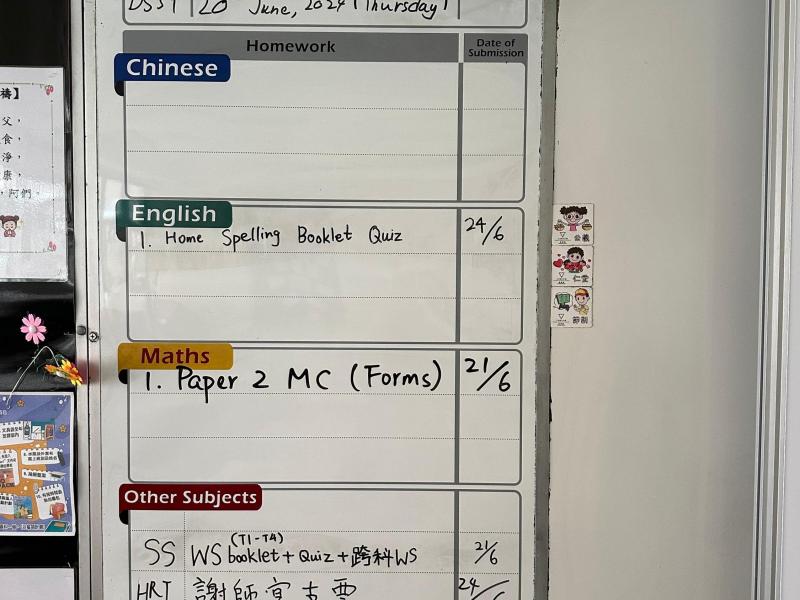 20 June, 2024 (Thursday)
Homework
Date of Submission
Chinese
English
1. Home Spelling Booklet Quiz 24/6
Maths
1. Paper 2 MC (Forms) 21/6
Other Subjects
(T1-T4)
SS WS booklet + Quiz + 跨科WS 21/6
HRT 謝師宴 24/6
禱】
父，
食，
淨，
康，
，阿們。
公義
仁愛
節制